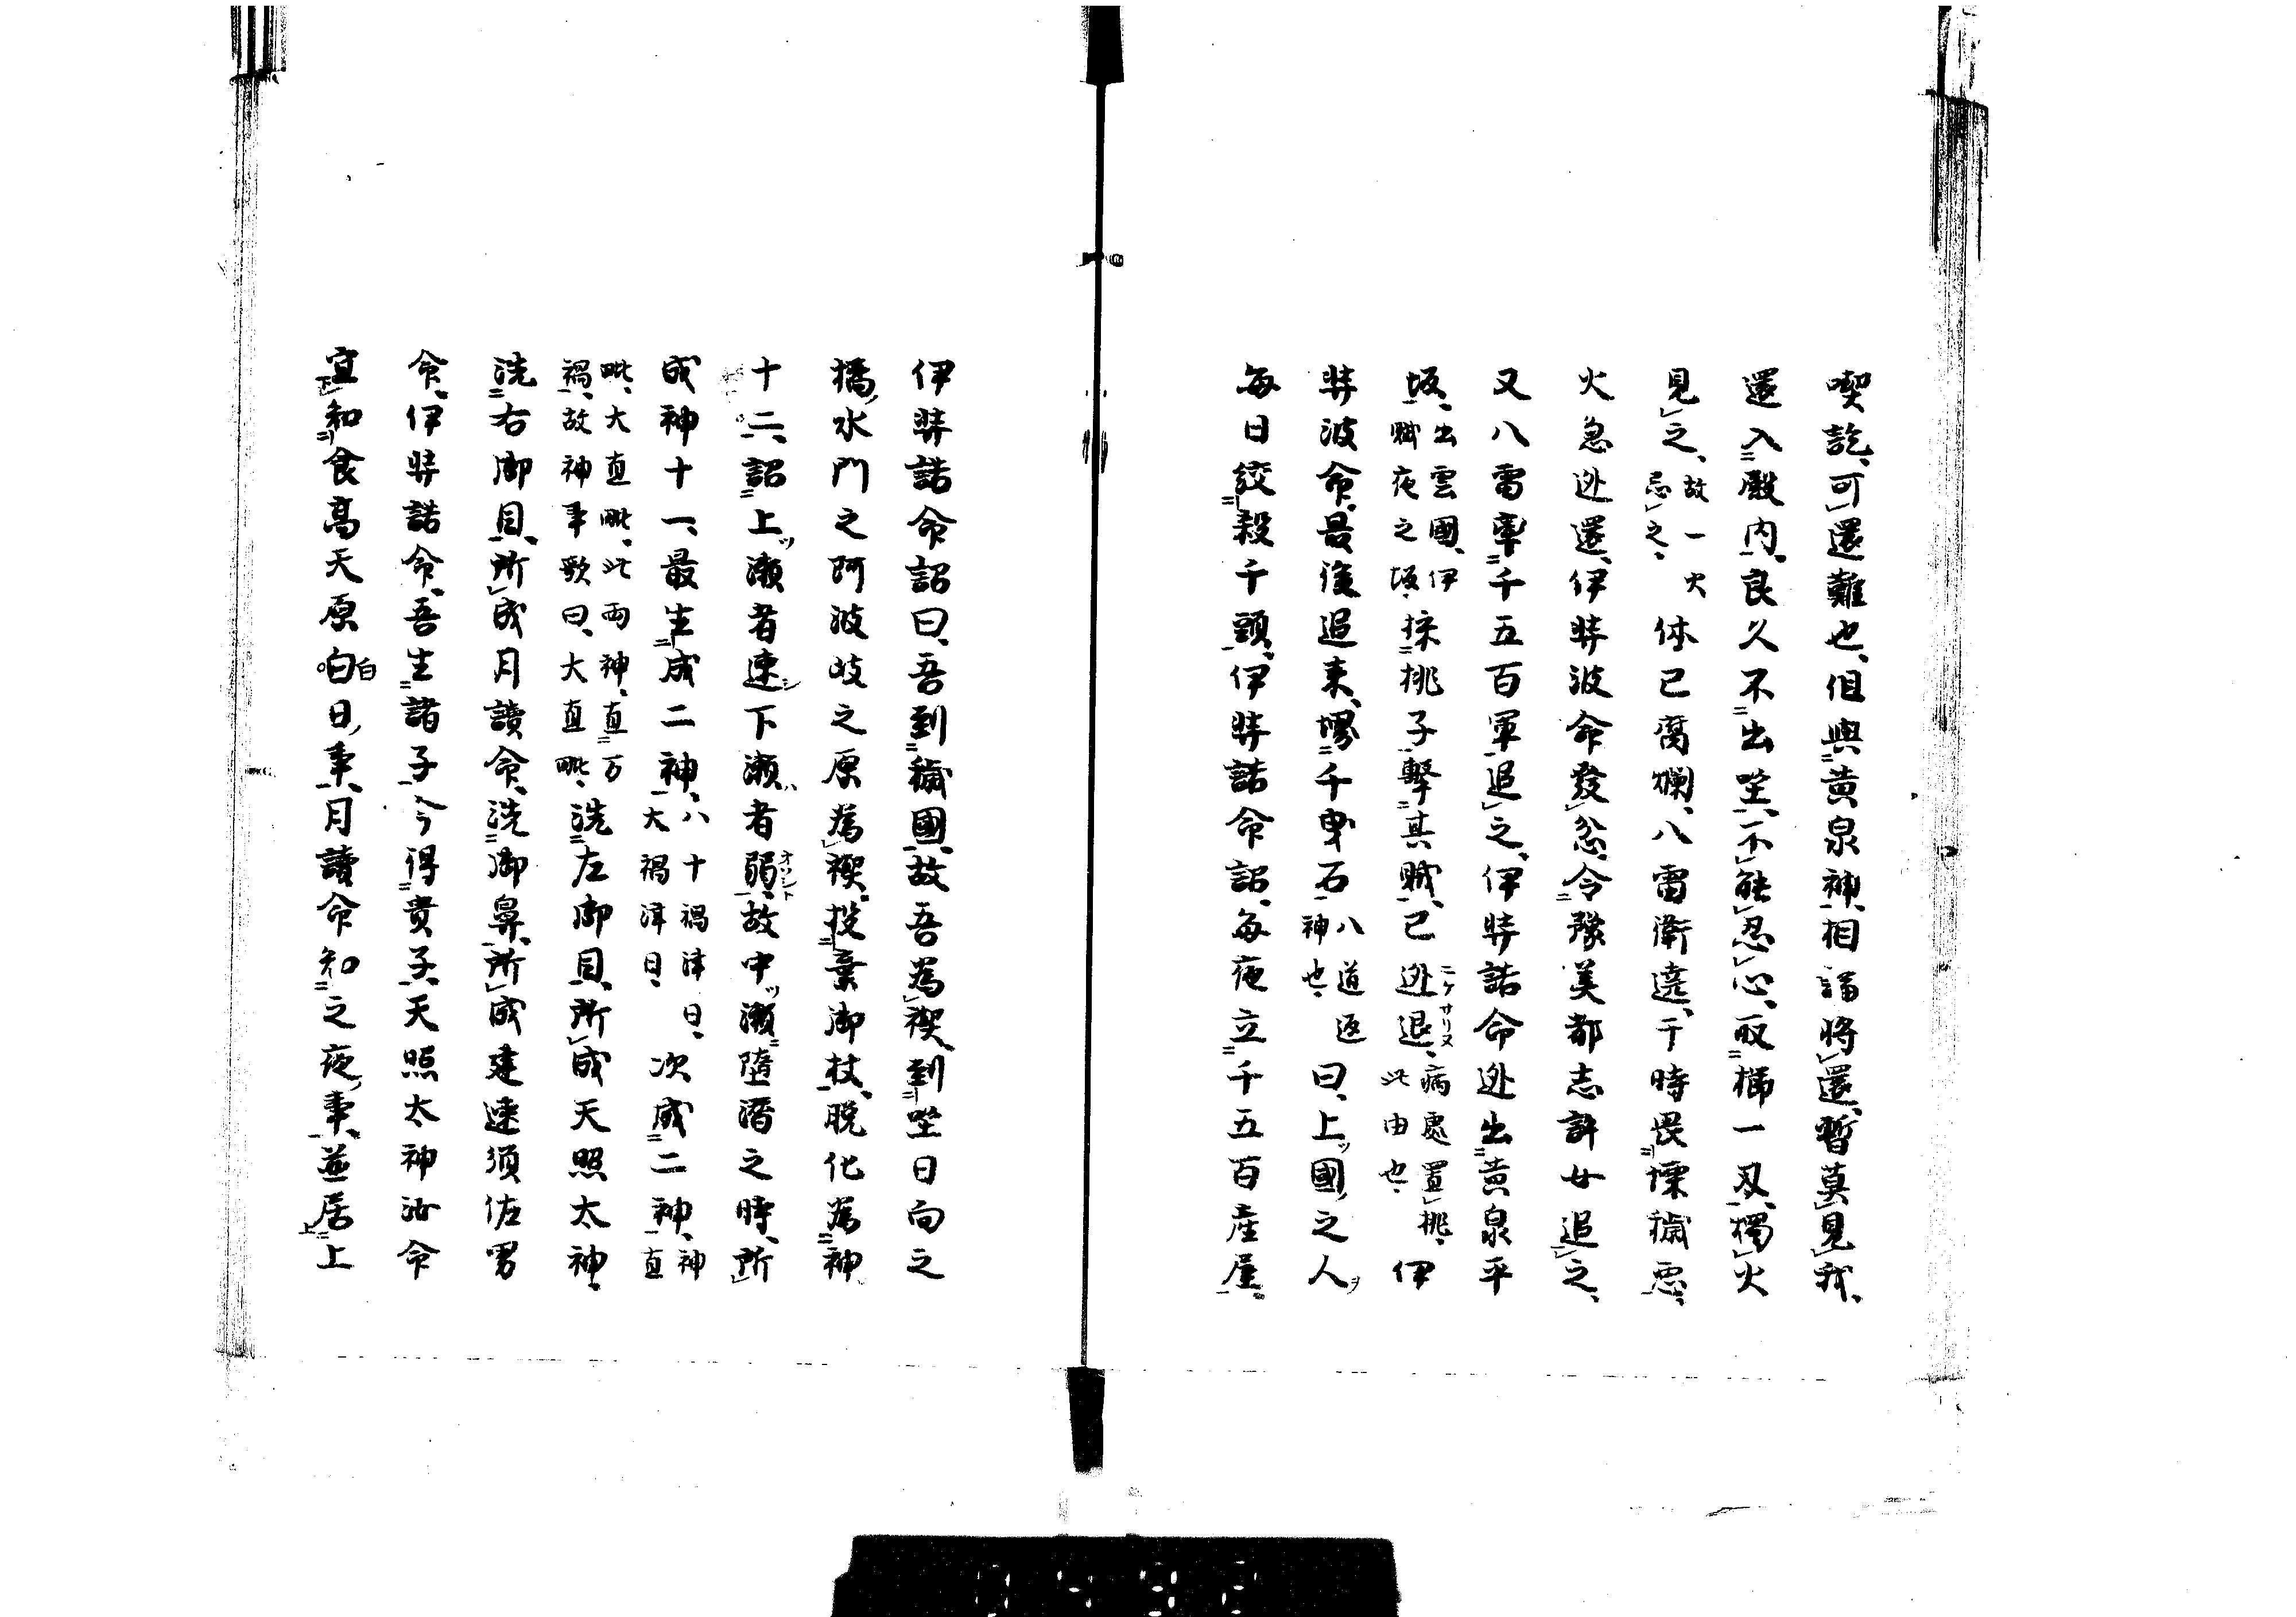 喫訖、可還難也、但與黄泉神、相語將還、暫莫見我、
還入殿内、良久不出坐、不能忍心、取櫛一刄、燭火
見之、故一火忌之、体已腐爛、八雷衛遶、于時畏慄穢悪、
火急迯還、伊弉波命發忿、令豫美都志許女追之、
又八雷率千五百軍追之、伊弉諾命迯出黄泉平
坂、出雲國、伊賦夜之坂、採桃子撃其賊、已迯退、ニケサリヌ病處置桃、此由也、伊
弉波命、最後追来、塞千曳石八道返神也、曰、上ツ國之人ヲ
毎日絞殺千頭、伊弉諾命詔、毎夜立千五百産屋、
伊弉諾命詔曰、吾到穢國、故吾為禊、到坐日向之
橘水門之阿波岐之原為禊、投棄御杖、脱化為神
十二、詔上ツ瀬者速シ下瀬ハ者弱、故中ツ瀬墮潛之時、所
成神十一、最生成二神、八十禍津日、大禍津日、次成二神、神直
毗、大直毗、此両神、直万禍、故神事歌曰、大直毗、洗左御目、所成天照太神、
洗右御目、所成月讀命、洗御鼻、所成建速須佐男
命、伊弉諾命、吾生諸子今得貴子、天照太神汝命
宜知食高天原白日事、月讀命知之夜事、並居上